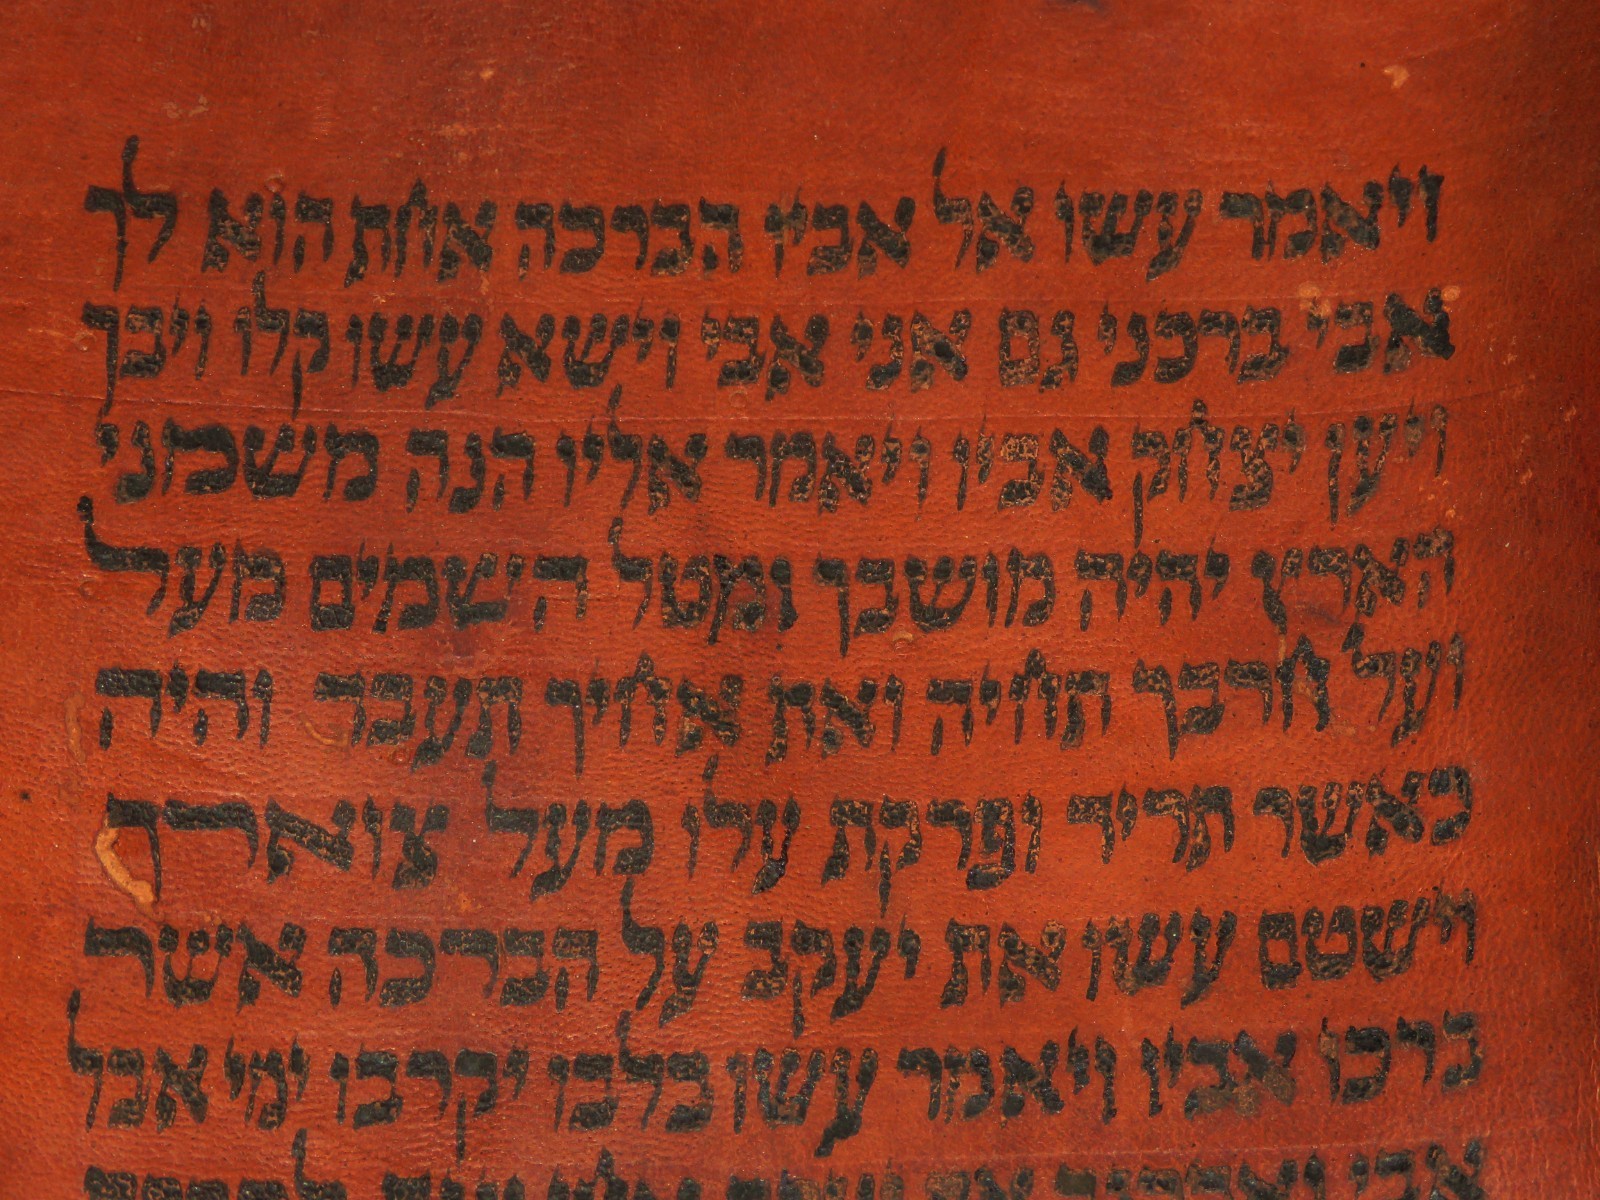 ויאמר עשו אל אביו הברכה אחת הוא לך
אבי ברכני גם אני אבי וישא עשו קלו ויבך
ויען יצחק אביו ויאמר אליו הנה משמני
הארץ יהיה מושבך ומטל השמים מעל
ועל חרבך תחיה ואת אחיך תעבד והיה
כאשר תריד ופרקת עלו מעל צוארך
וישטם עשו את יעקב על הברכה אשר
ברכו אביו ויאמר עשו בלבו יקרבו ימי אבל
אבי ואהרגה את